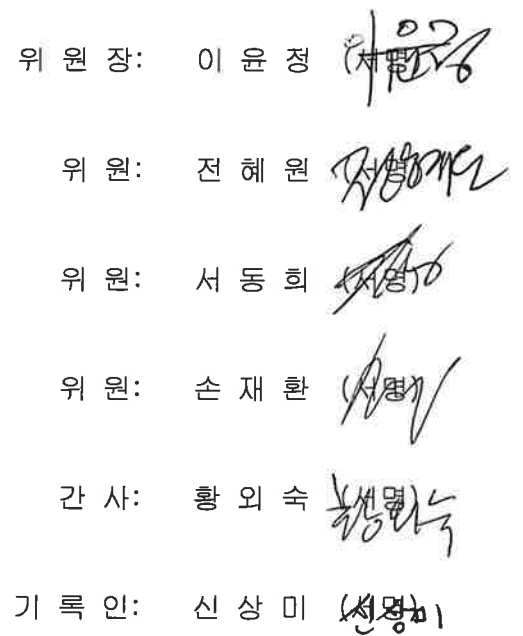 위 원 장: 이 윤 정 (서명)
위 원: 전 혜 원 (서명)
위 원: 서 동 희 (서명)
위 원: 손 재 환 (서명)
간 사: 황 외 숙 (서명)
기 록 인: 신 상 미 (서명)